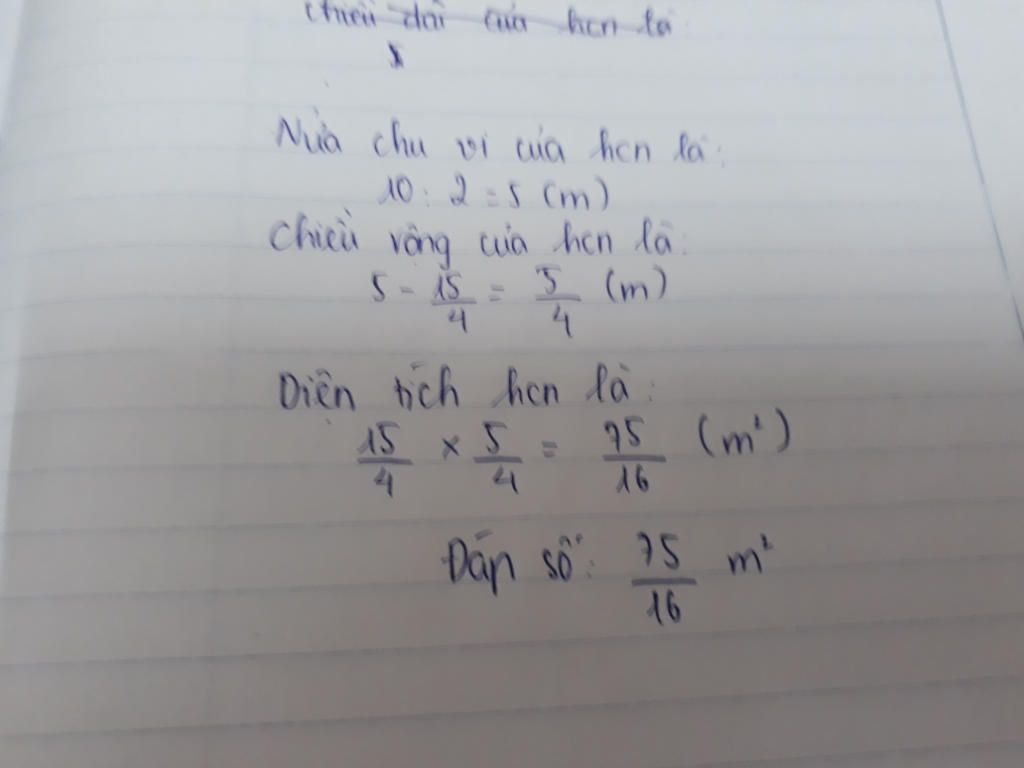 chiều dài của hcn là:
Nửa chu vi của hcn là:
10 : 2 = 5 (m)
Chiều rộng của hcn là:
5 - 15/4 = 5/4 (m)
Diện tích hcn là:
15/4 × 5/4 = 75/16 (m²)
Đáp số: 75/16 m²